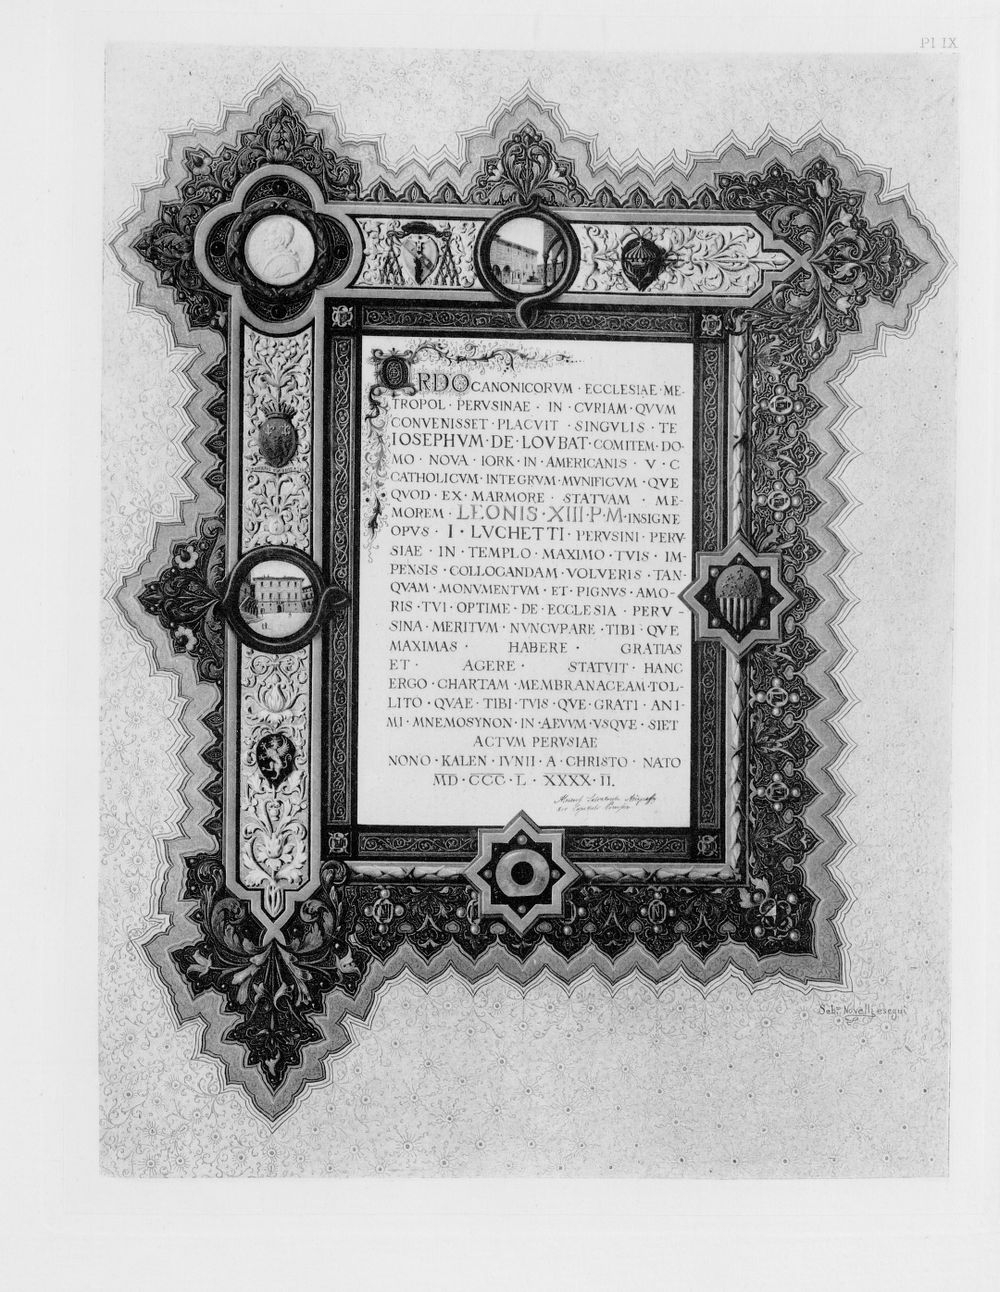 Pl IX
ORDO CANONICORVM · ECCLESIAE · ME-
TROPOL · PERVSINAE · IN · CVRIAM · QVVM
CONVENISSET · PLACVIT · SINGVLIS · TE
IOSEPHVM · DE · LOVBAT · COMITEM · DO-
MO · NOVA · IORK · IN · AMERICANIS · V · C
CATHOLICVM · INTEGRVM · MVNIFICVM · QVE
QVOD · EX · MARMORE · STATVAM · ME-
MOREM · LEONIS · XIII · P · M · INSIGNE
OPVS · I · LVCHETTI · PERVSINI · PERV-
SIAE · IN · TEMPLO · MAXIMO · TVIS · IM-
PENSIS · COLLOCANDAM · VOLVERIS · TAN-
QVAM · MONVMENTVM · ET · PIGNVS · AMO-
RIS · TVI · OPTIME · DE · ECCLESIA · PERV-
SINA · MERITVM · NVNCVPARE · TIBI · QVE
MAXIMAS · HABERE · GRATIAS
ET · AGERE · STATVIT · HANC
ERGO · CHARTAM · MEMBRANACEAM · TOL-
LITO · QVAE · TIBI · TVIS · QVE · GRATI · ANI-
MI · MNEMOSYNON · IN · AEVVM · VSQVE · SIET
ACTVM PERVSIAE
NONO · KALEN · IVNII · A · CHRISTO · NATO
MD · CCC · L · XXXX · II.
Seb. Novelli eseguì